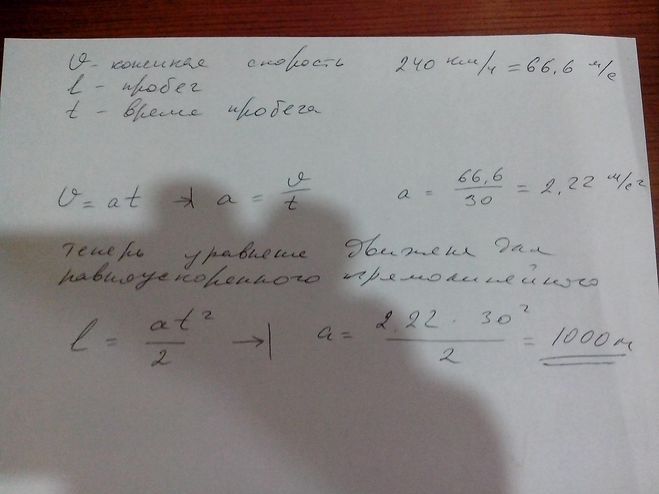 v - конечная скорость 240 км/ч = 66,6 м/с
l - пробег
t - время пробега
v = at → a = v/t a = 66,6/30 = 2,22 м/с²
теперь уравнение движения для
равноускоренного прямолинейного
l = at²/2 → a = 2,22 · 30²/2 = 1000 м